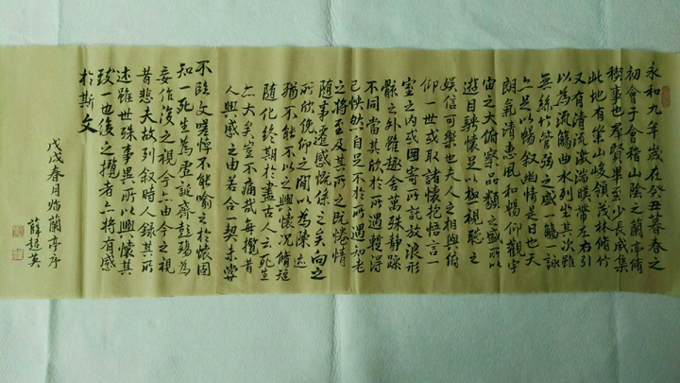 永和九年歲在癸丑暮春之
初會于會稽山陰之蘭亭脩
稧事也群賢畢至少長咸集
此地有崇山峻領茂林脩竹
又有清流激湍暎帶左右引
以為流觴曲水列坐其次雖
無絲竹管弦之盛一觴一詠
亦足以暢敘幽情是日也天
朗氣清惠風和暢仰觀宇
宙之大俯察品類之盛所以
遊目騁懷足以極視聽之
娛信可樂也夫人之相與俯
仰一世或取諸懷抱悟言一
室之內或因寄所託放浪形
骸之外雖趣舍萬殊靜躁
不同當其欣於所遇蹔得
己怏然自足不知老
之將至及其所之既惓情
隨事遷感慨係之矣向之
所欣俛仰之閒以為陳迹
猶不能不以之興懷況脩短
隨化終期於盡古人云死生
亦大矣豈不痛哉每攬昔
人興感之由若合一契未嘗
不臨文嗟悼不能喻之於懷固
知一死生為虛誕齊彭殤為
妄作後之視今亦由今之視
昔悲夫故列敘時人錄其所
述雖世殊事異所以興懷其
致一也後之攬者亦將有感
於斯文
戊戌春月臨蘭亭序
薛超英